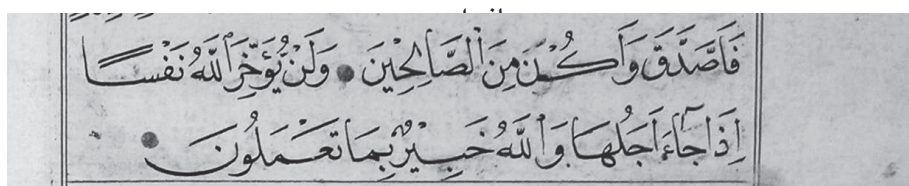 فَاَصَّدَّقَ وَاَكُنَ مِنَ الصَّالِحِيْنَ وَلَنْ يُؤَخِّرَ اللّٰهُ نَفْسًا
اِذَا جَاءَ اَجَلُهَا وَاللّٰهُ خَبِيْرٌ بِمَا تَعْمَلُونَ